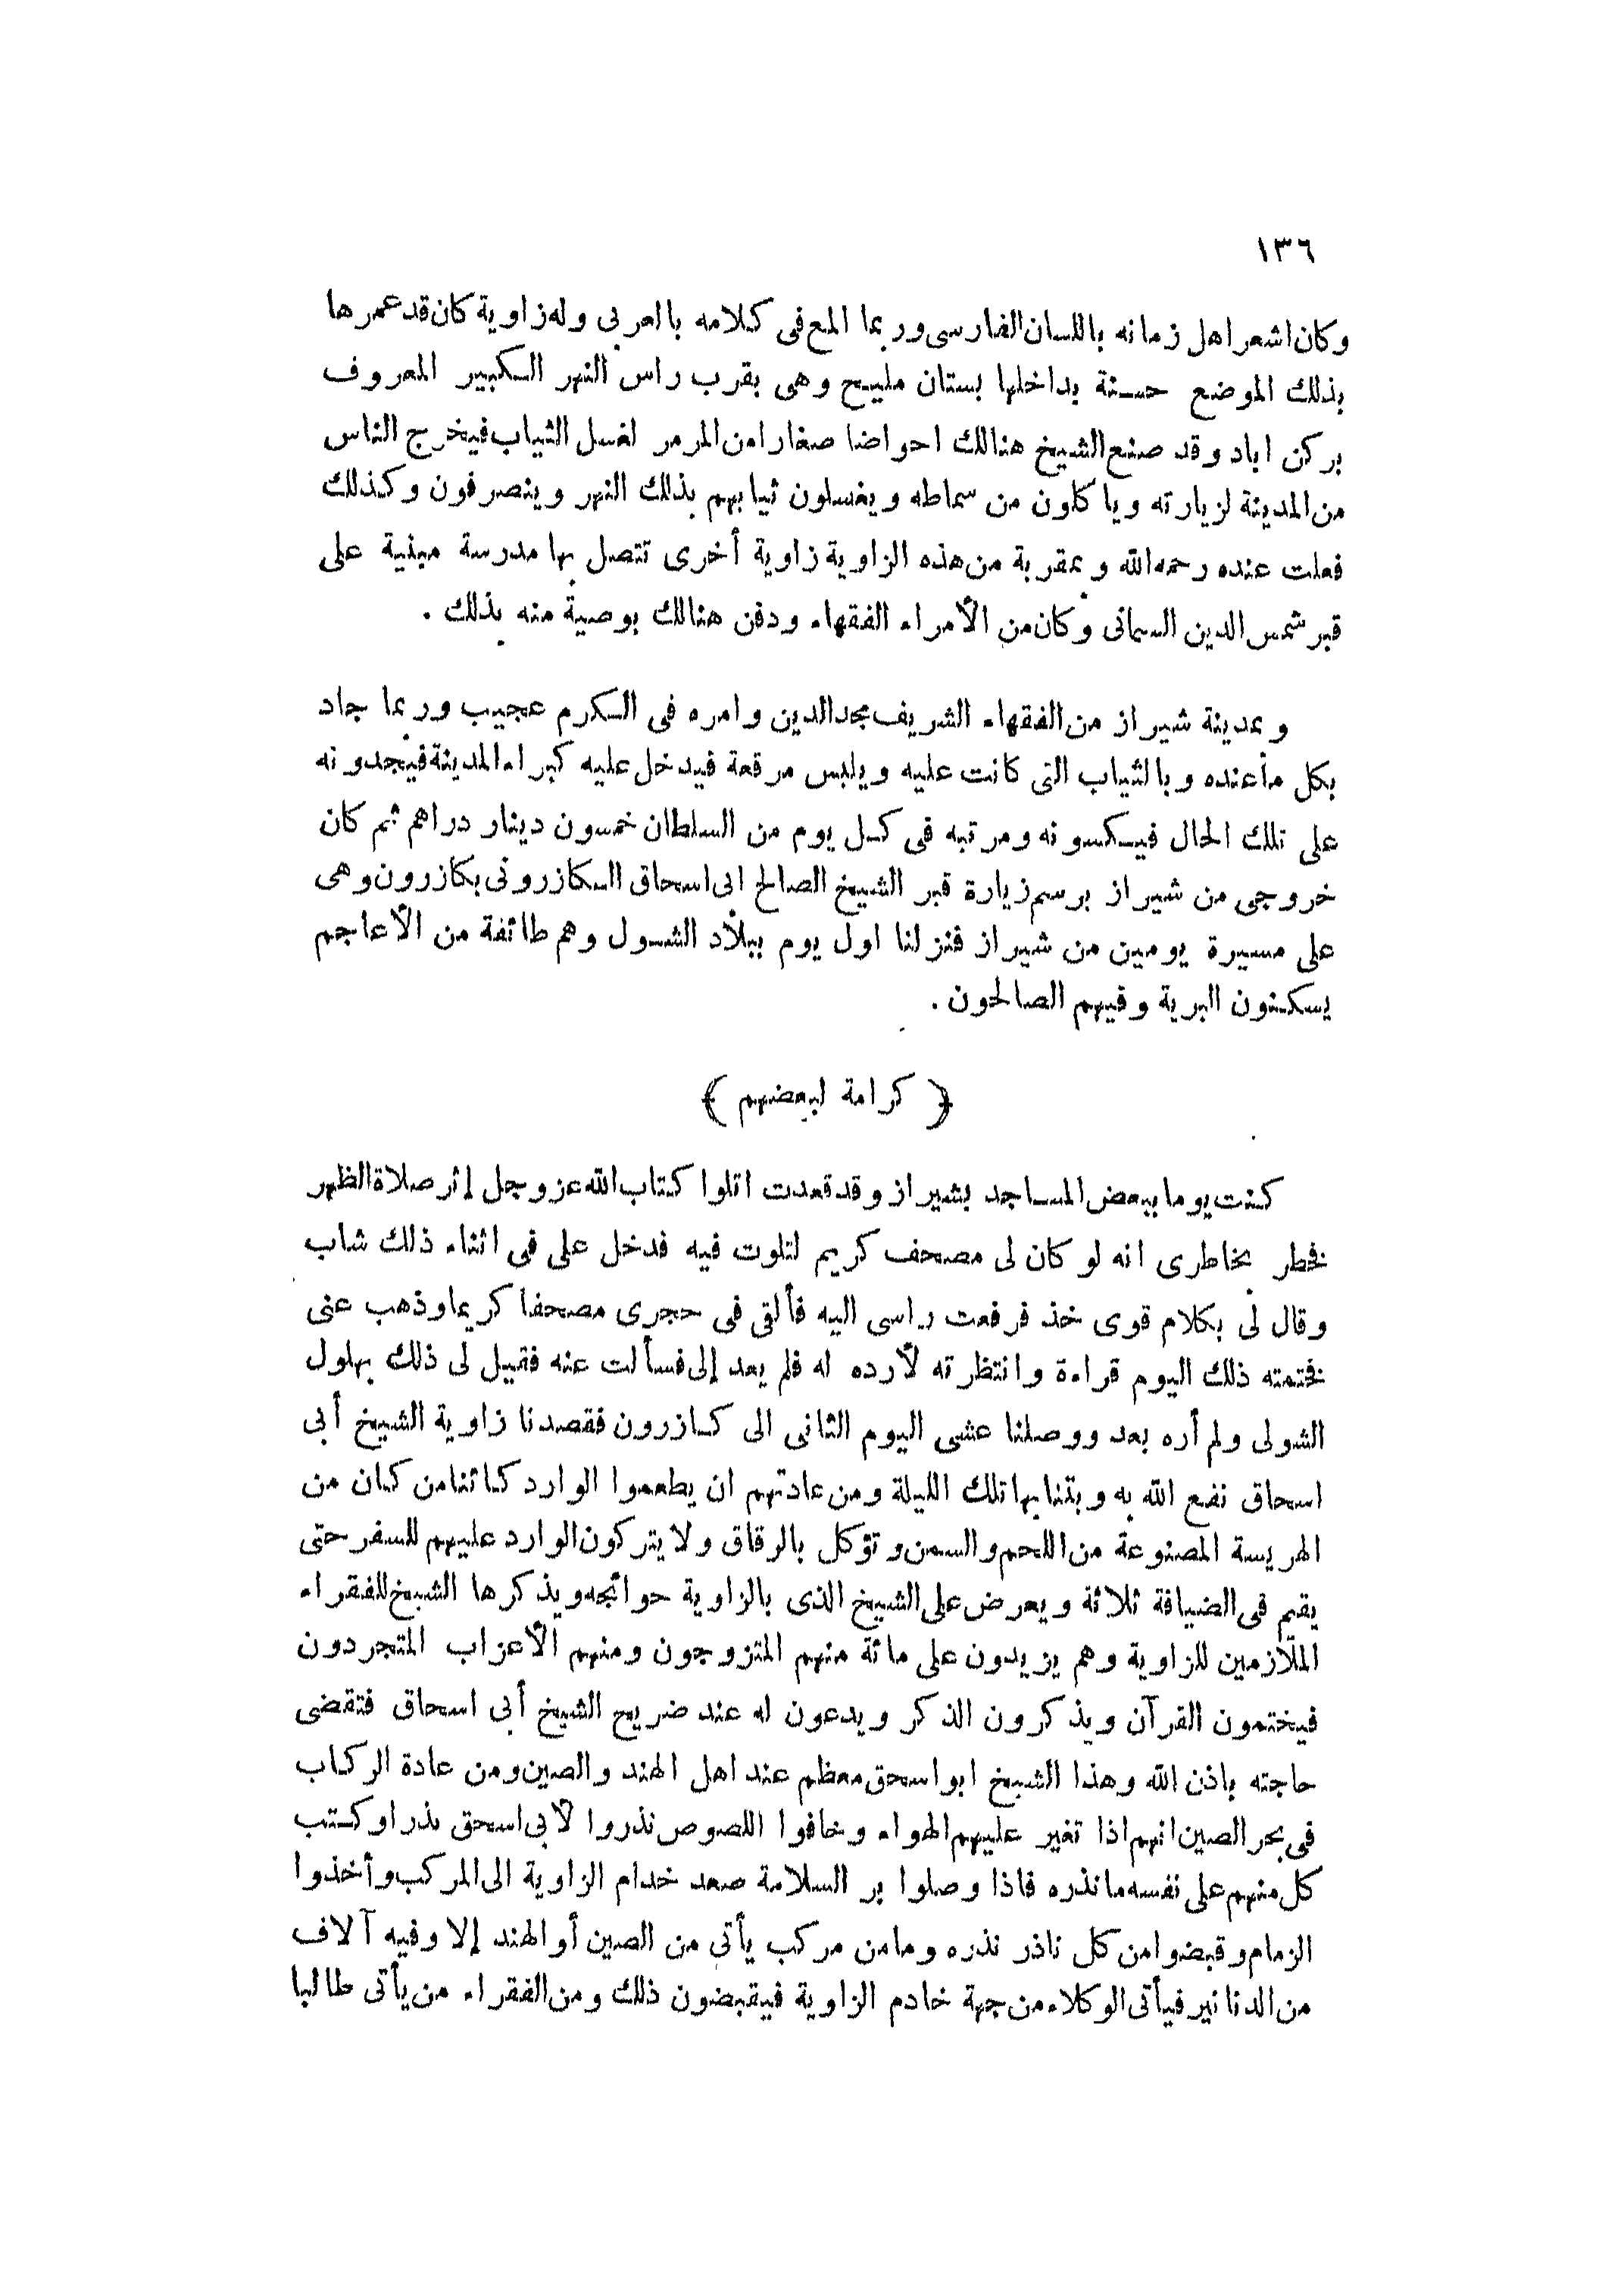 ١٣٦
وكان اشعر اهل زمانه باللسان الفارسى وربما المع فى كلامه بالعربى وله زاوية كان قد عمرها
بذلك الموضع حسنة بداخلها بستان مليح وهى بقرب راس النهر الكبير المعروف
بركن اباد وقد صنع الشيخ هنالك احواضا صغارا من المرمر لغسل الثياب فيخرج الناس
من المدينة لزيارته وياكلون من سماطه ويغسلون ثيابهم بذلك النهر وينصرفون وكذلك
فعلت عنده رحمه الله وبمقربة من هذه الزاوية زاوية أخرى تتصل بها مدرسة مبنية على
قبر شمس الدين السمانى وكان من الأمراء الفقهاء ودفن هنالك بوصية منه بذلك .
وبمدينة شيراز من الفقهاء الشريف مجد الدين وامره فى الكرم عجيب وربما جاد
بكل ما عنده وبالثياب التى كانت عليه ويلبس مرقعة فيدخل عليه كبراء المدينة فيجدونه
على تلك الحال فيكسونه ومرتبه فى كل يوم من السلطان خمسون دينار دراهم ثم كان
خروجى من شيراز برسم زيارة قبر الشيخ الصالح ابى اسحاق الكازرونى بكازرون وهى
على مسيرة يومين من شيراز فنزلنا اول يوم ببلاد الشول وهم طائفة من الأعاجم
يسكنون البرية وفيهم الصالحون .
﴿ كرامة لبعضهم ﴾
كنت يوما ببعض المساجد بشيراز وقد قعدت اتلوا كتاب الله عز وجل إثر صلاة الظهر
فخطر بخاطرى انه لو كان لى مصحف كريم لتلوت فيه فدخل على فى اثناء ذلك شاب
وقال لى بكلام قوى خذ فرفعت راسى اليه فألقى فى حجرى مصحفا كريما وذهب عنى
فختمته ذلك اليوم قراءة وانتظرته لأرده له فلم يعد إلى فسألت عنه فقيل لى ذلك بهلول
الشولى ولم أره بعد ووصلنا عشى اليوم الثانى الى كازرون فقصدنا زاوية الشيخ أبى
اسحاق نفع الله به وبتنا بها تلك الليلة ومن عادتهم ان يطعموا الوارد كائنا من كان من
الهريسة المصنوعة من اللحم والسمن وتؤكل بالرقاق ولا يتركون الوارد عليهم للسفر حتى
يقيم فى الضيافة ثلاثة ويعرض على الشيخ الذى بالزاوية حوائجه ويذكرها الشيخ للفقراء
الملازمين للزاوية وهم يزيدون على مائة منهم المتزوجون ومنهم الأعزاب المتجردون
فيختمون القرآن ويذكرون الذكر ويدعون له عند ضريح الشيخ أبى اسحاق فتقضى
حاجته باذن الله وهذا الشيخ ابو اسحق معظم عند اهل الهند والصين ومن عادة الركاب
فى بحر الصين انهم اذا تغير عليهم الهواء وخافوا اللصوص نذروا لأبى اسحق نذرا وكتب
كل منهم على نفسه ما نذره فاذا وصلوا بر السلامة صعد خدام الزاوية الى المركب وأخذوا
الزمام وقبضوا من كل ناذر نذره وما من مركب يأتى من الصين أو الهند إلا وفيه آلاف
من الدنانير فيأتى الوكلاء من جهة خادم الزاوية فيقبضون ذلك ومن الفقراء من يأتى طالبا